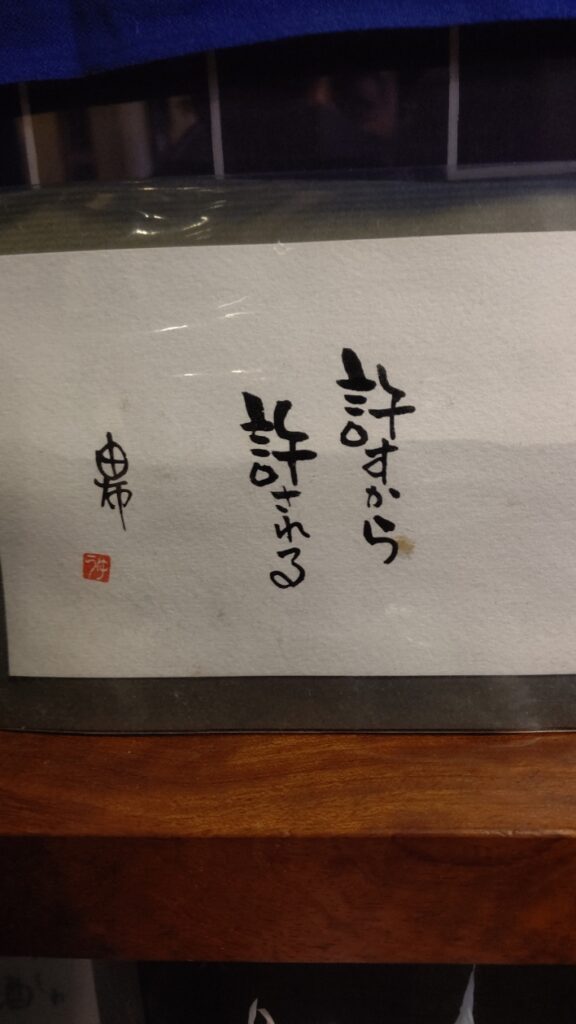 許すから
許される